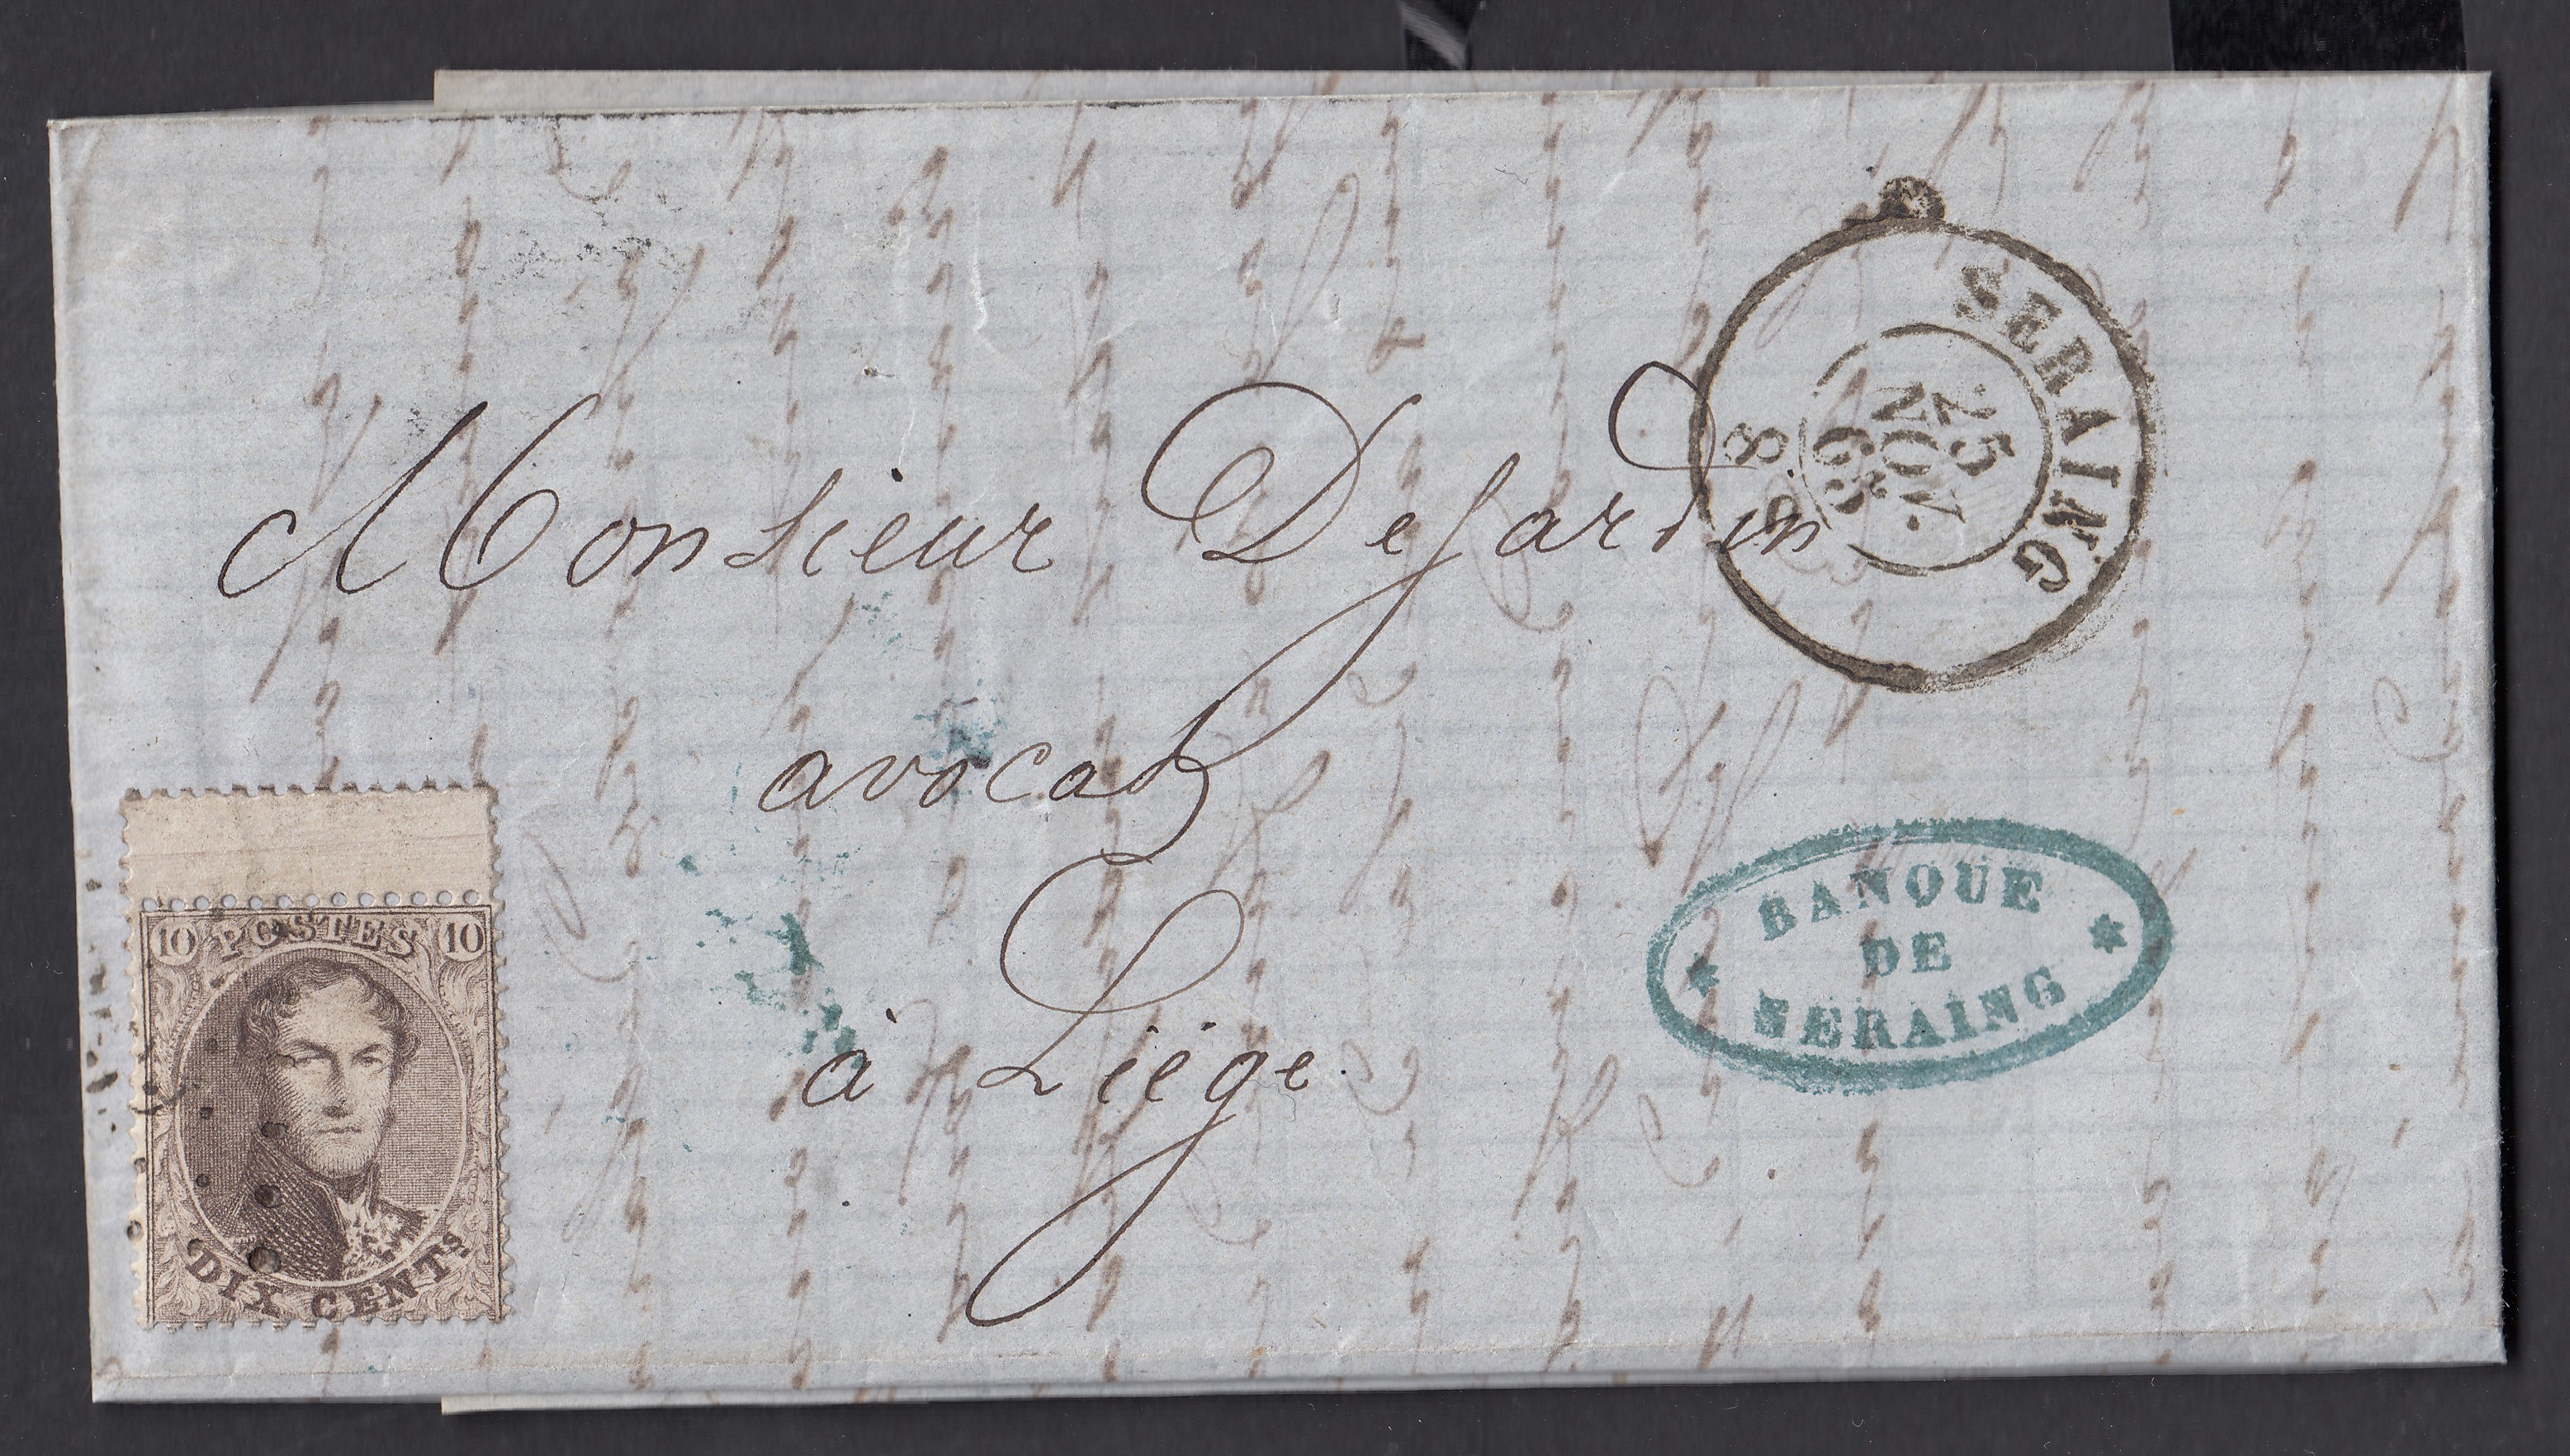 SERAING
25
NOV.
65
8
Monsieur Dejardin
avocat
à Liége.
BANQUE
DE
SERAING
10 POSTES 10
DIX CENTS.